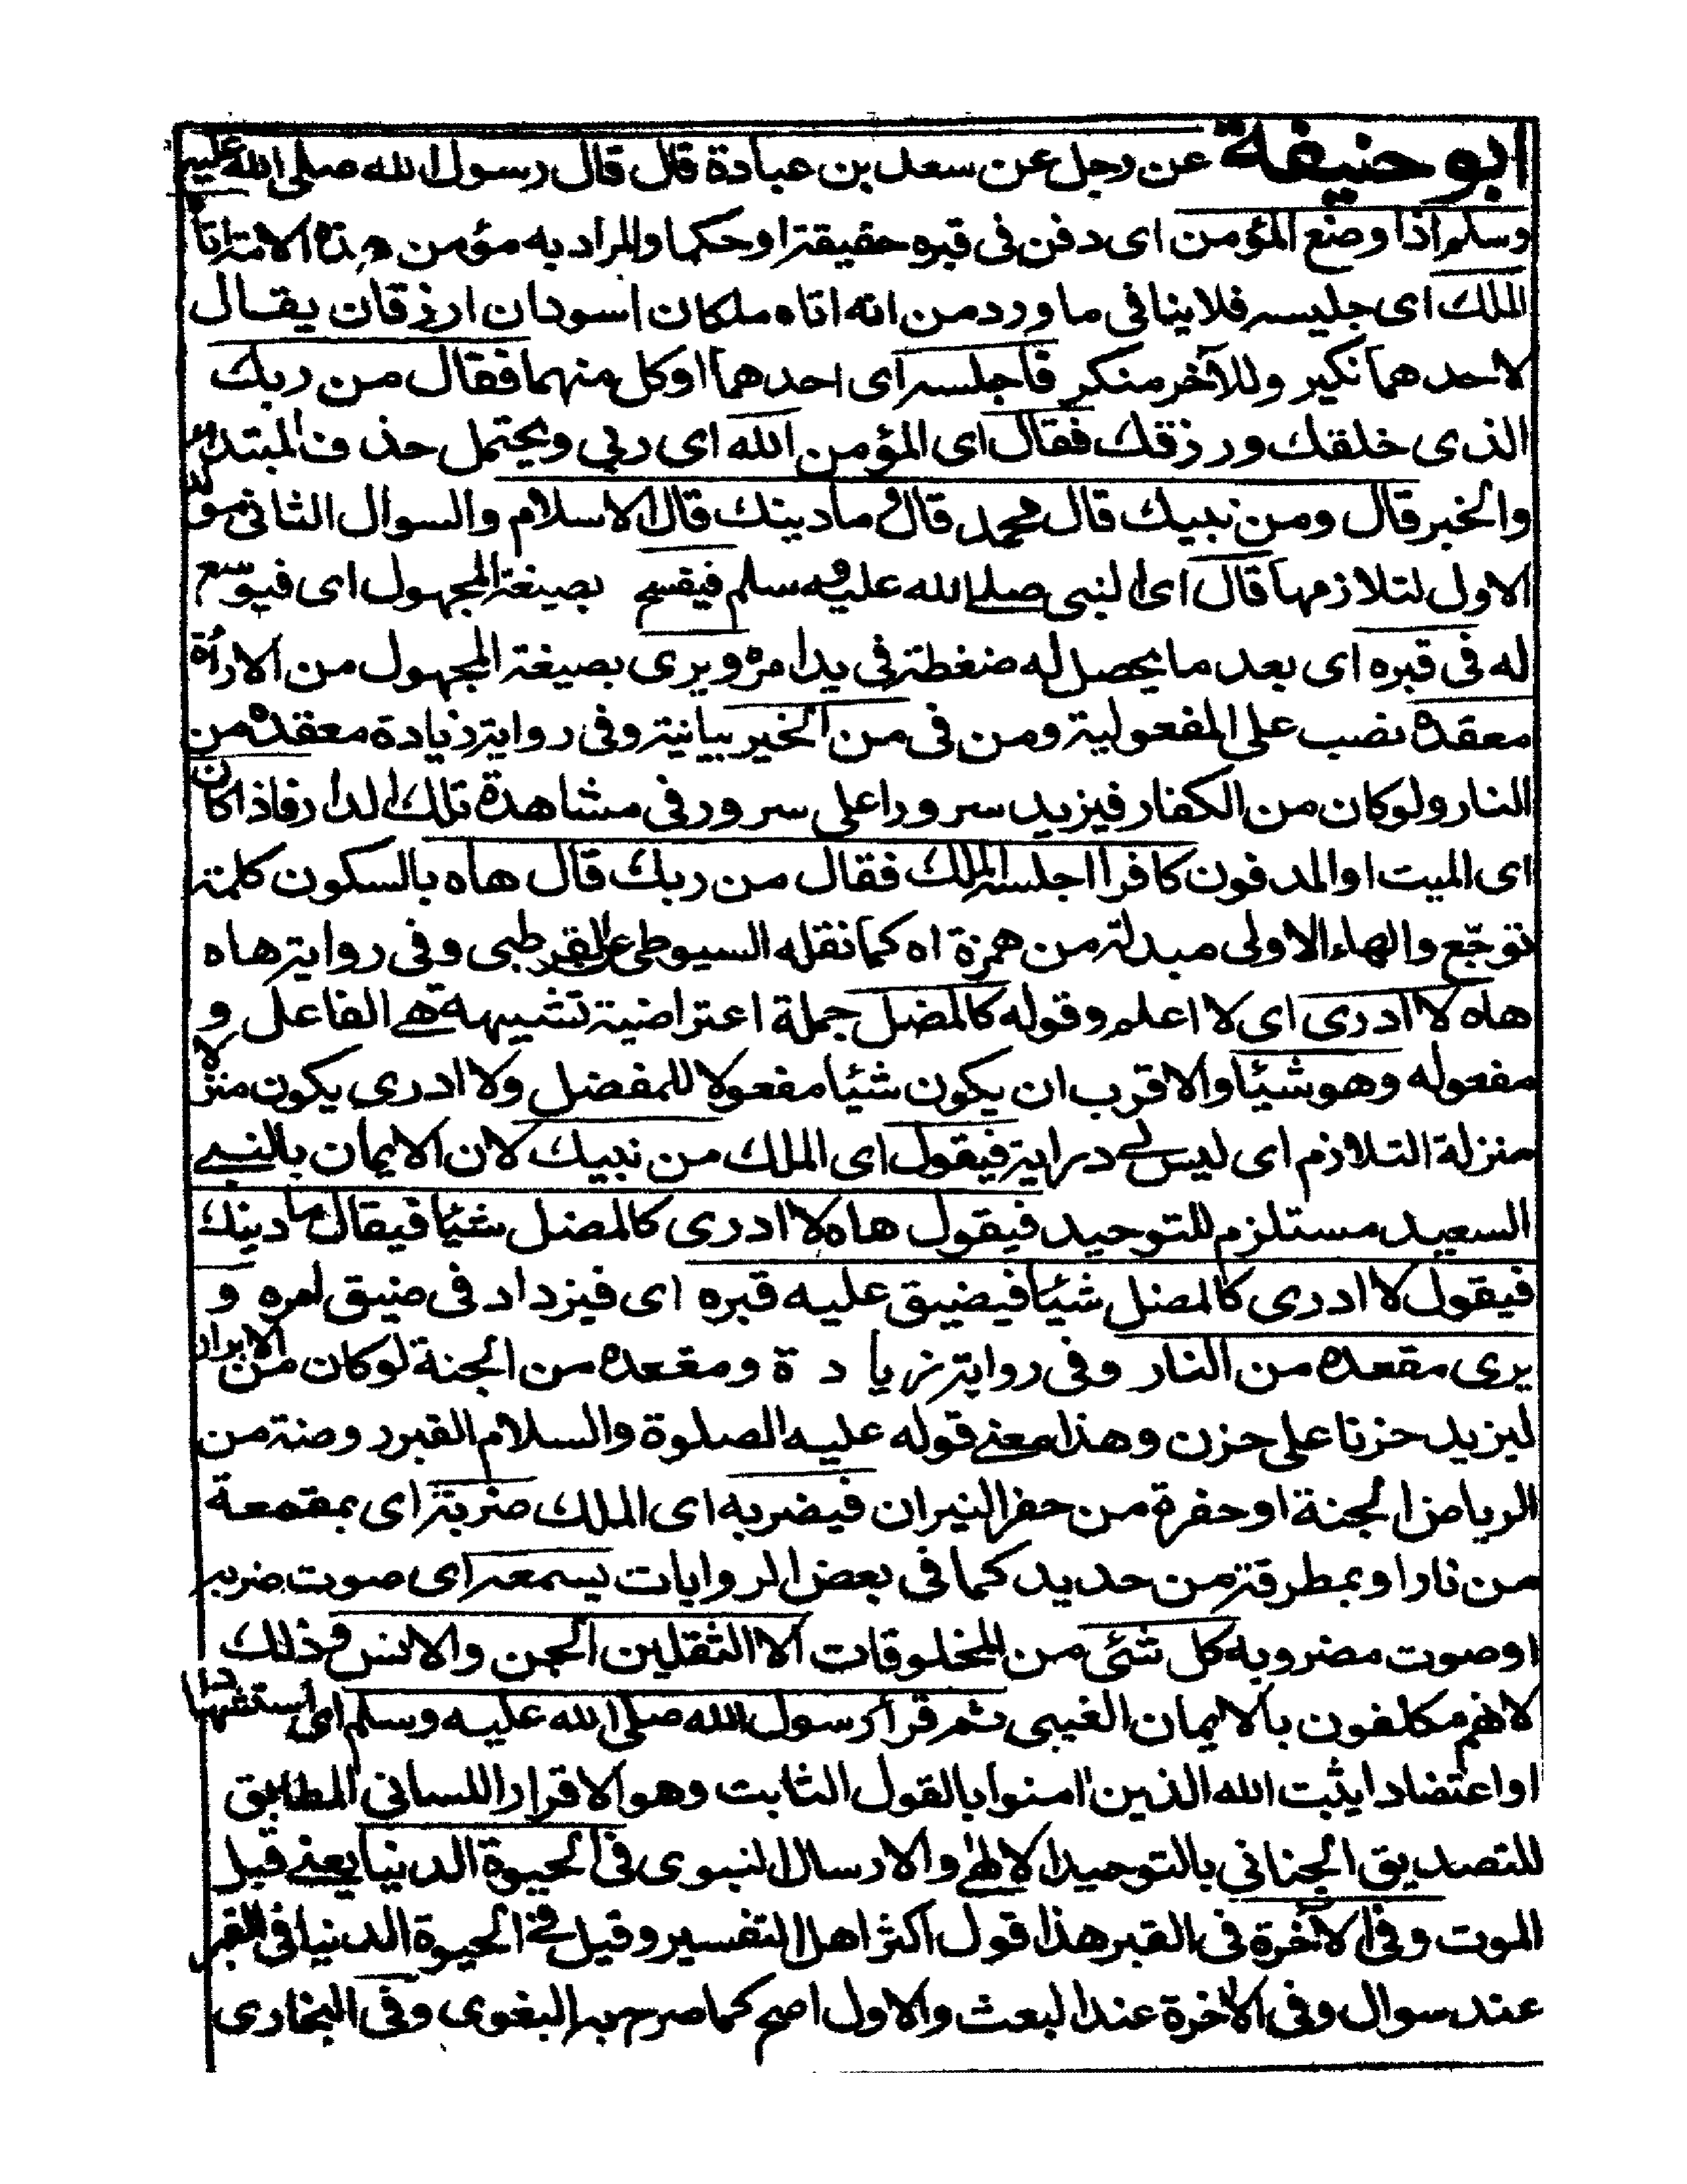 ابو حنيفة عن رجل عن سعد بن عبادة قال قال رسول الله صلى الله عليه
وسلم اذا وضع المؤمن اى دفن فى قبره حقيقة او حكما والمراد به مؤمن هذه الامة اتاه
الملك اى جليسه فلا ينافى ما ورد من انه اتاه ملكان اسودان ارزقان يقال
لاحدهما نكير وللآخر منكر فاجلسه اى احدهما او كل منهما فقال من ربك
الذى خلقك ورزقك فقال اى المؤمن الله اى ربي ويحتمل حذف المبتدء
والخبر قال ومن نبيك قال محمد قال وما دينك قال الاسلام والسوال الثانى
الاول لتلازمها قال اى النبى صلے الله عليه وسلم فيفسح بصيغة المجهول اى فيوسع
له فى قبره اى بعد ما يحصل له ضغطة فى يدا مره ويرى بصيغة المجهول من الاراءة
معقده نصب على المفعولية ومن فى من الخير بيانية وفى رواية زيادة معقده من
النار ولو كان من الكفار فيزيد سرورا على سرور فى مشاهدة تلك الدار فاذا كان
اى الميت او المدفون كافرا اجلسه الملك فقال من ربك قال هاه بالسكون كلمة
توجّع والهاء الاولى مبدلة من همزة اه كما نقله السيوطى عن القرطبى وفى رواية هاه
هاه لا ادرى اى لا اعلم وقوله كالمضل جملة اعتراضية تشبيهة هے الفاعل و
مفعوله وهو شيئا والاقرب ان يكون شيئا مفعولا للمفضل ولا ادرى يكون منزلا
منزلة التلازم اى ليس لے دراية فيقول اى الملك من نبيك لان الايمان بالنبے
السعيد مستلزم للتوحيد فيقول هاه لا ادرى كالمضل شيئا فيقال ما دينك
فيقول لا ادرى كالمضل شيئا فيضيق عليه قبره اى فيزداد فى ضيق امره و
يرى مقعده من النار وفى رواية زيادة ومقعده من الجنة لو كان من الابرار
ليزيد حزنا على حزن وهذا معنے قوله عليه الصلوة والسلام القبر روضة من
الرياض الجنة او حفرة من حفر النيران فيضربه اى الملك ضربة اى بمقمعة
من نار او بمطرقة من حديد كما فى بعض الروايات يسمعه اى صوت ضربه
او صوت مضروبه كل شئى من المخلوقات الا الثقلين الجن والانس وذلك
لانهم مكلفون بالايمان الغيبى ثم قرأ رسول الله صلى الله عليه وسلم اى استشهادا
او اعتضادا يثبت الله الذين امنوا بالقول الثابت وهو الاقرار اللسانى المطابق
للتصديق الجنانى بالتوحيد الالهے والارسال النبوى فى الحيوة الدنيا يعنے قبل
الموت وفى الآخرة فى القبر هذا قول اكثر اهل التفسير وقيل فى الحيوة الدنيا فى القبر
عند سوال وفى الآخرة عند البعث والاول اصح كما صرح به البغوى وفى البخارى